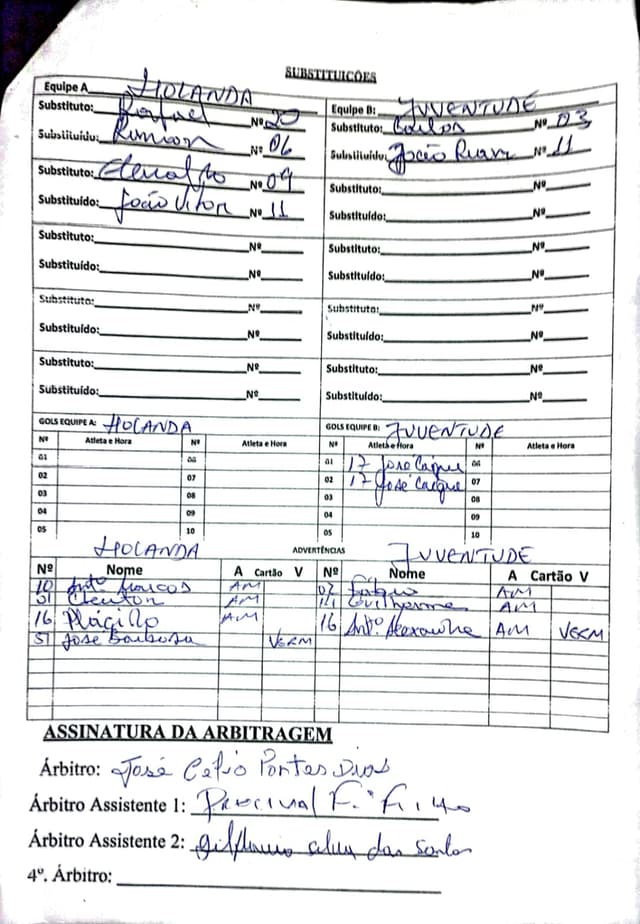 SUBSTITUICÕES
Equipe A HOLANDA
Substituto: Rafael Nº 20
Substituído: Nº 06
Substituto: Nº 09
Substituído: João Vitor Nº 11
Substituto: Nº
Substituído: Nº
Substituto: Nº
Substituído: Nº
Substituto: Nº
Substituído: Nº
Equipe B: JUVENTUDE
Substituto: Carlos Nº 03
Substituído: João Ruan Nº 11
Substituto: Nº
Substituído: Nº
Substituto: Nº
Substituído: Nº
Substituto: Nº
Substituído: Nº
Substituto: Nº
Substituído: Nº
GOLS EQUIPE A: HOLANDA
Nº Atleta e Hora Nº Atleta e Hora
01 06
02 07
03 08
04 09
05 10
GOLS EQUIPE B: JUVENTUDE
Nº Atleta e Hora Nº Atleta e Hora
01 17 José Caique 06
02 17 José Caique 07
03 08
04 09
05 10
HOLANDA ADVERTÊNCIAS JUVENTUDE
Nº Nome A Cartão V Nº Nome A Cartão V
10 Antº Marcos AM Fabio AM
51 Cleuton AM Guilherme AM
16 Plácido AM 16 Antº Alexandre AM VERM
51 José Barbosa VERM
ASSINATURA DA ARBITRAGEM
Árbitro: José Célio Pontes Dias
Árbitro Assistente 1: Percival F.º Filho
Árbitro Assistente 2: silva dos Santos
4º. Árbitro: